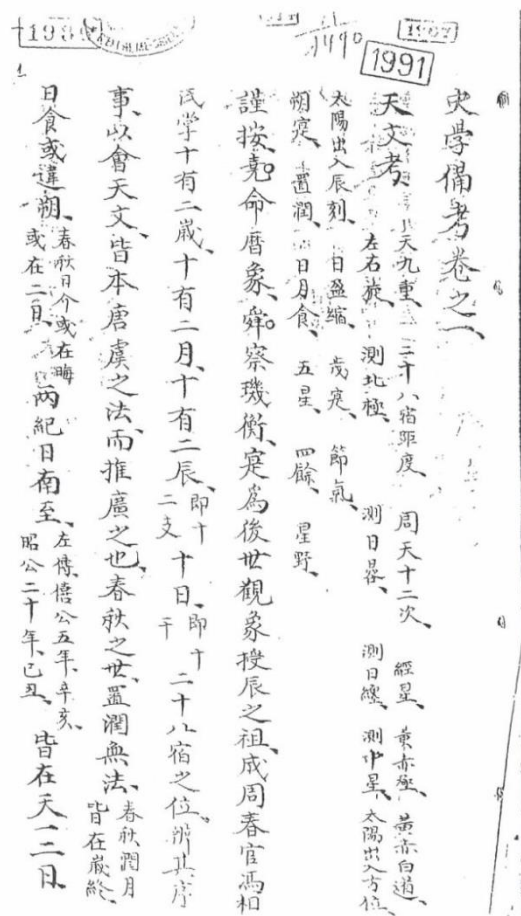 1991
1490
史學備考卷之一、
天文考、
天九重、二十八宿距度、周天十二次、經星、黄赤極、黄赤白道、
左右旋、測北極、測日晷、測日纏、測中星、太陽出入方位、
太陽出入辰刻、日盈縮、歲寔、節氣、
朔寔、置潤、日月食、五星、四餘、星野、
謹按堯命暦象、舜察璣衡、寔爲後世觀象授辰之祖、成周春官馮相
氏學十有二歲、十有二月、十有二辰、即十二支十日、即十干二十八宿之位、辨其序
事、以會天文、皆本唐虞之法、而推廣之也、春秋之世、置潤無法、春秋潤月皆在歲終
日食或違朔、春秋日介或在晦或在二日、兩紀日南至、左傳僖公五年辛亥、昭公二十年己丑、皆在天一二日、